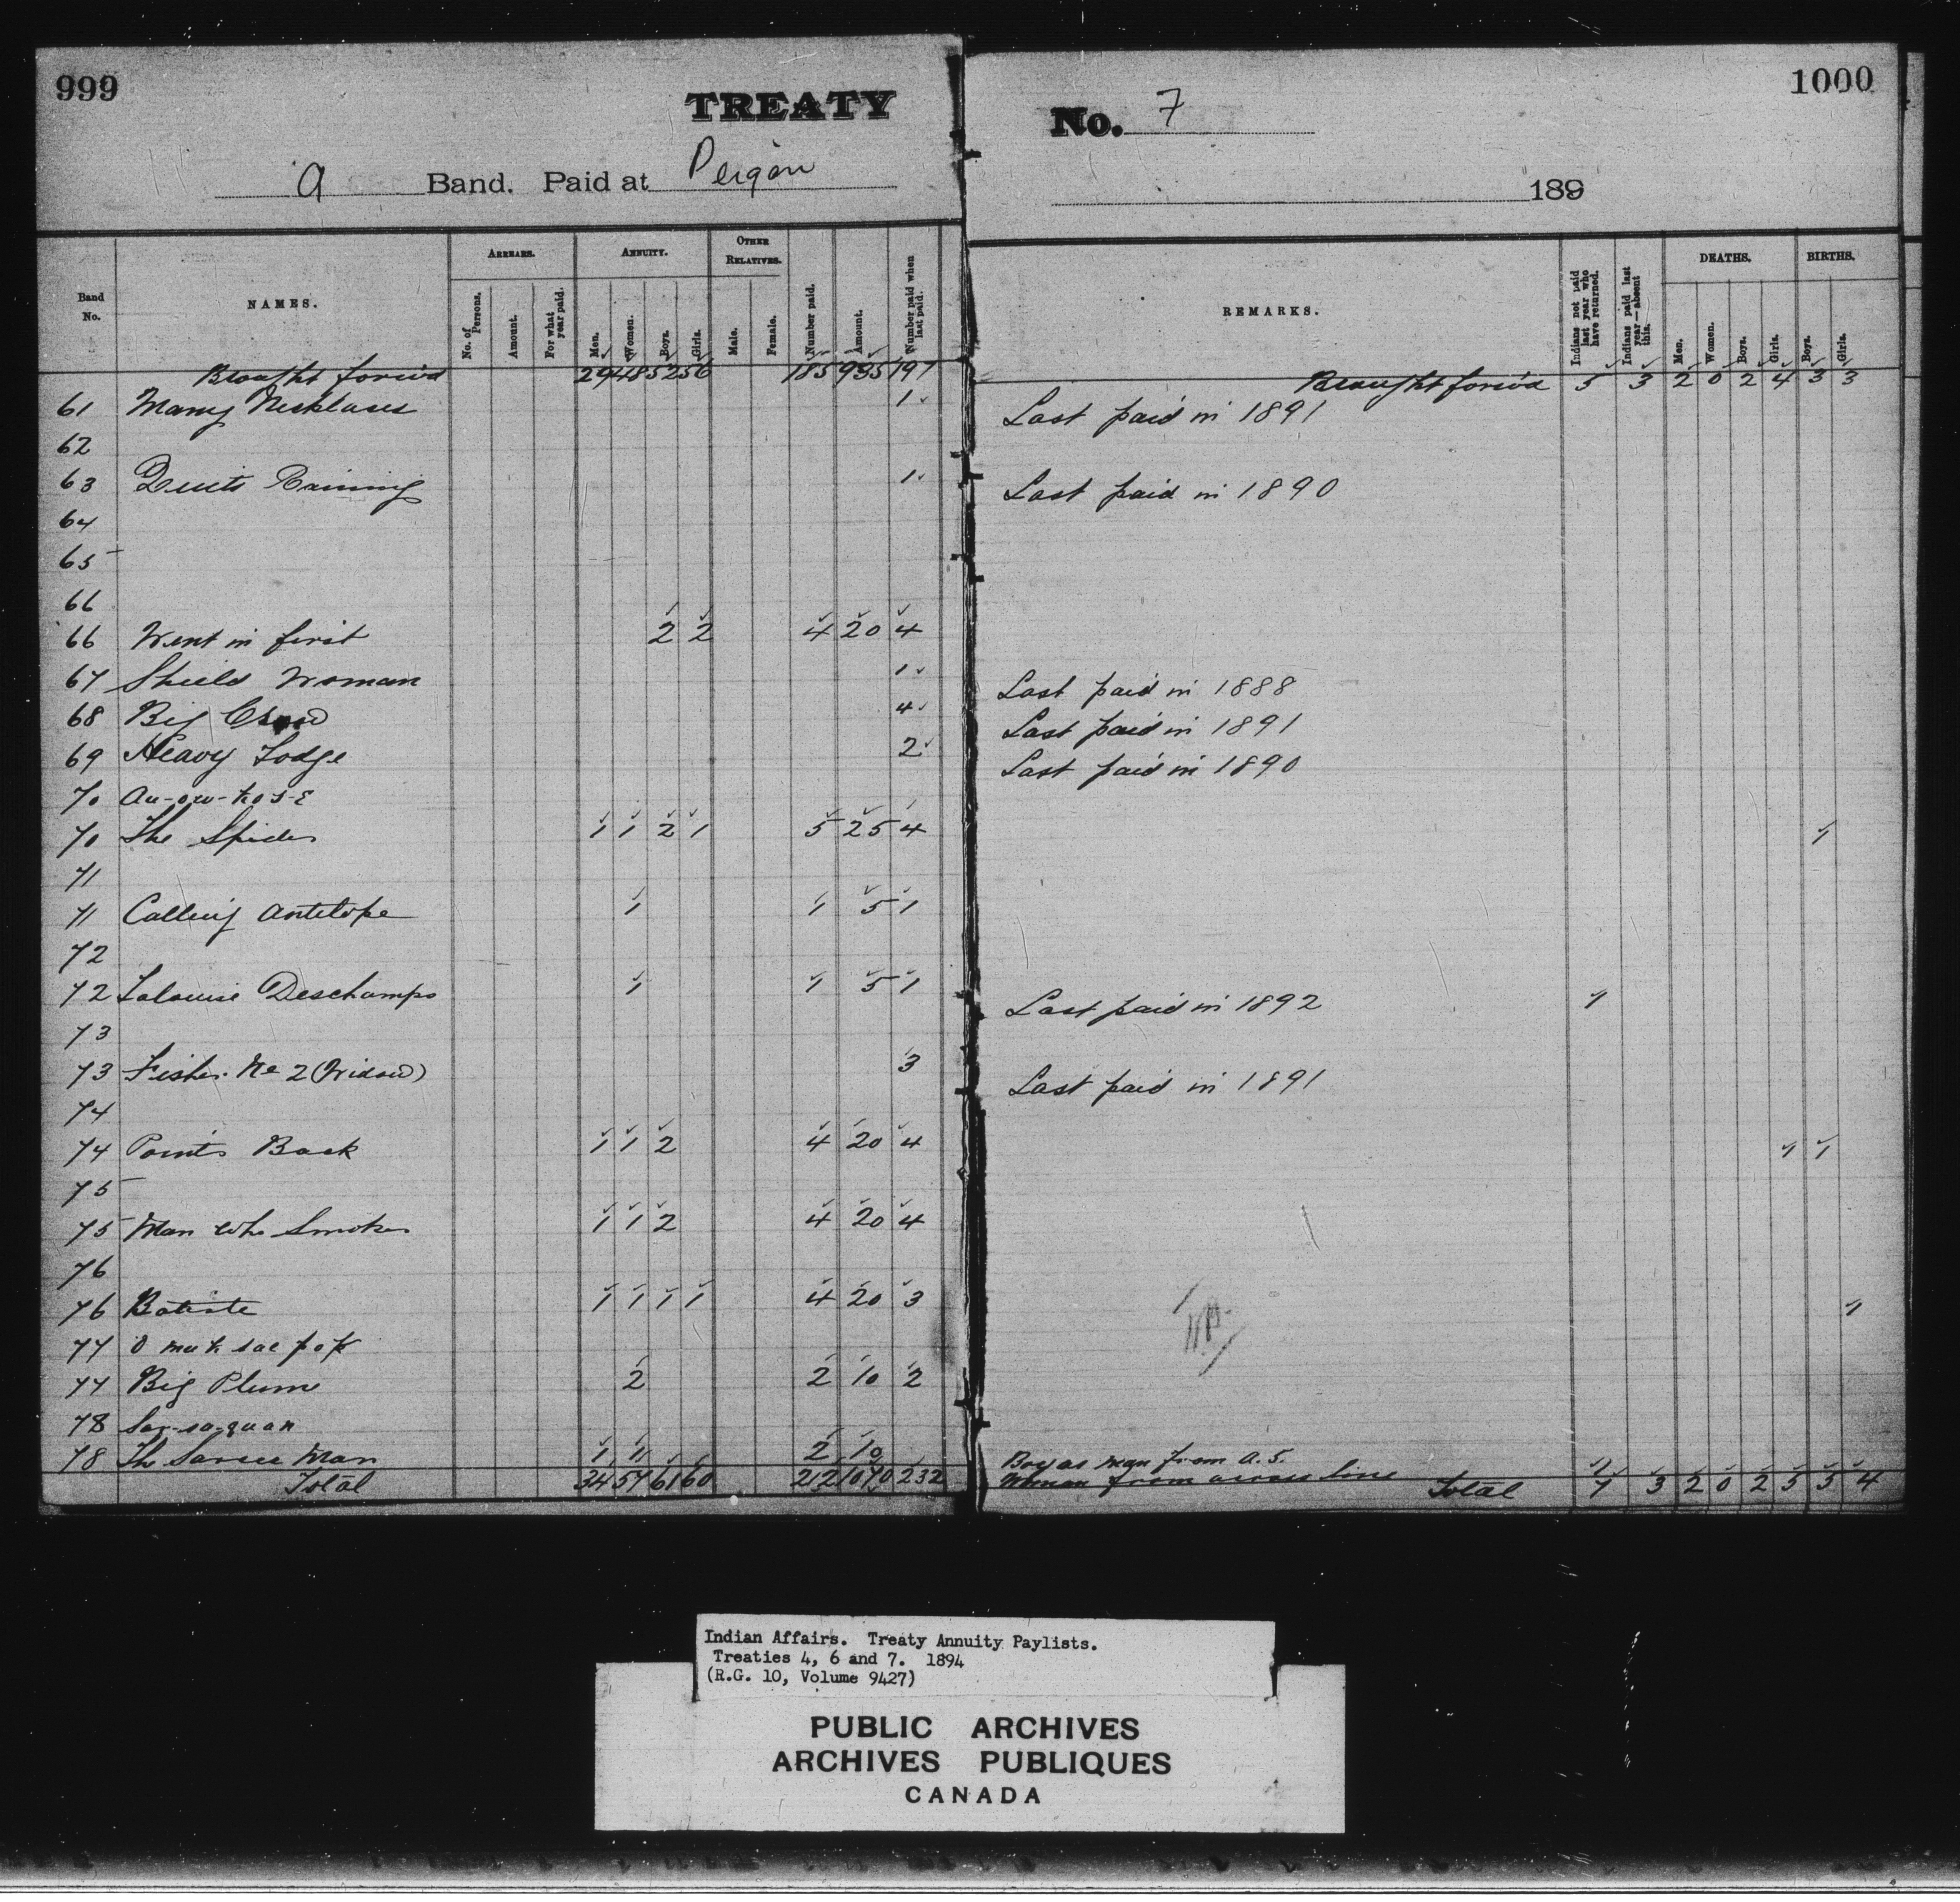 999
TREATY
a Band. Paid at Peigan
Band No. NAMES. ARREARS. No. of Persons. Amount. For what year paid. ANNUITY. Men. Women. Boys. Girls. OTHER RELATIVES. Male. Female. Number paid. Amount. Number paid when last paid.
Brought forw'd 29 48 52 56 185 935 197
61 Many Necklaces 1
62
63 Quits Raining 1
64
65
66
66 Went in first 2 2 4 20 4
67 Shield Woman 1
68 Big Crow 4
69 Heavy Lodge 2
70
70 The Spider 1 1 2 1 5 25 4
71
71 Calling Antelope 1 1 5 1
72
72 Lalouise Deschamps 1 1 5 1
73
73 Fisher No 2 (Widow) 3
74
74 Points Back 1 1 2 4 20 4
75
75 Man who Smokes 1 1 2 4 20 4
76
76 Batiste 1 1 1 1 4 20 3
77 O muk sae pop
77 Big Plume 2 2 10 2
78 Sar-sa-quan
78 The Sarcee Man 1 1 2 10
Total 34 57 61 60 212 1070 232
1000
No. 7
189
REMARKS. Indians not paid last year who have returned. Indians paid last year—absent this. DEATHS. Men. Women. Boys. Girls. BIRTHS. Boys. Girls.
Brought forw'd 5 3 2 0 2 4 3 3
Last paid in 1891
Last paid in 1890
Last paid in 1888
Last paid in 1891
Last paid in 1890
1
Last paid in 1892 1
Last paid in 1891
1 1
1
Boy as man from A.S.
Woman from across line 1
Total 7 3 2 0 2 5 5 4
Indian Affairs. Treaty Annuity Paylists.
Treaties 4, 6 and 7. 1894
(R.G. 10, Volume 9427)
PUBLIC ARCHIVES
ARCHIVES PUBLIQUES
CANADA